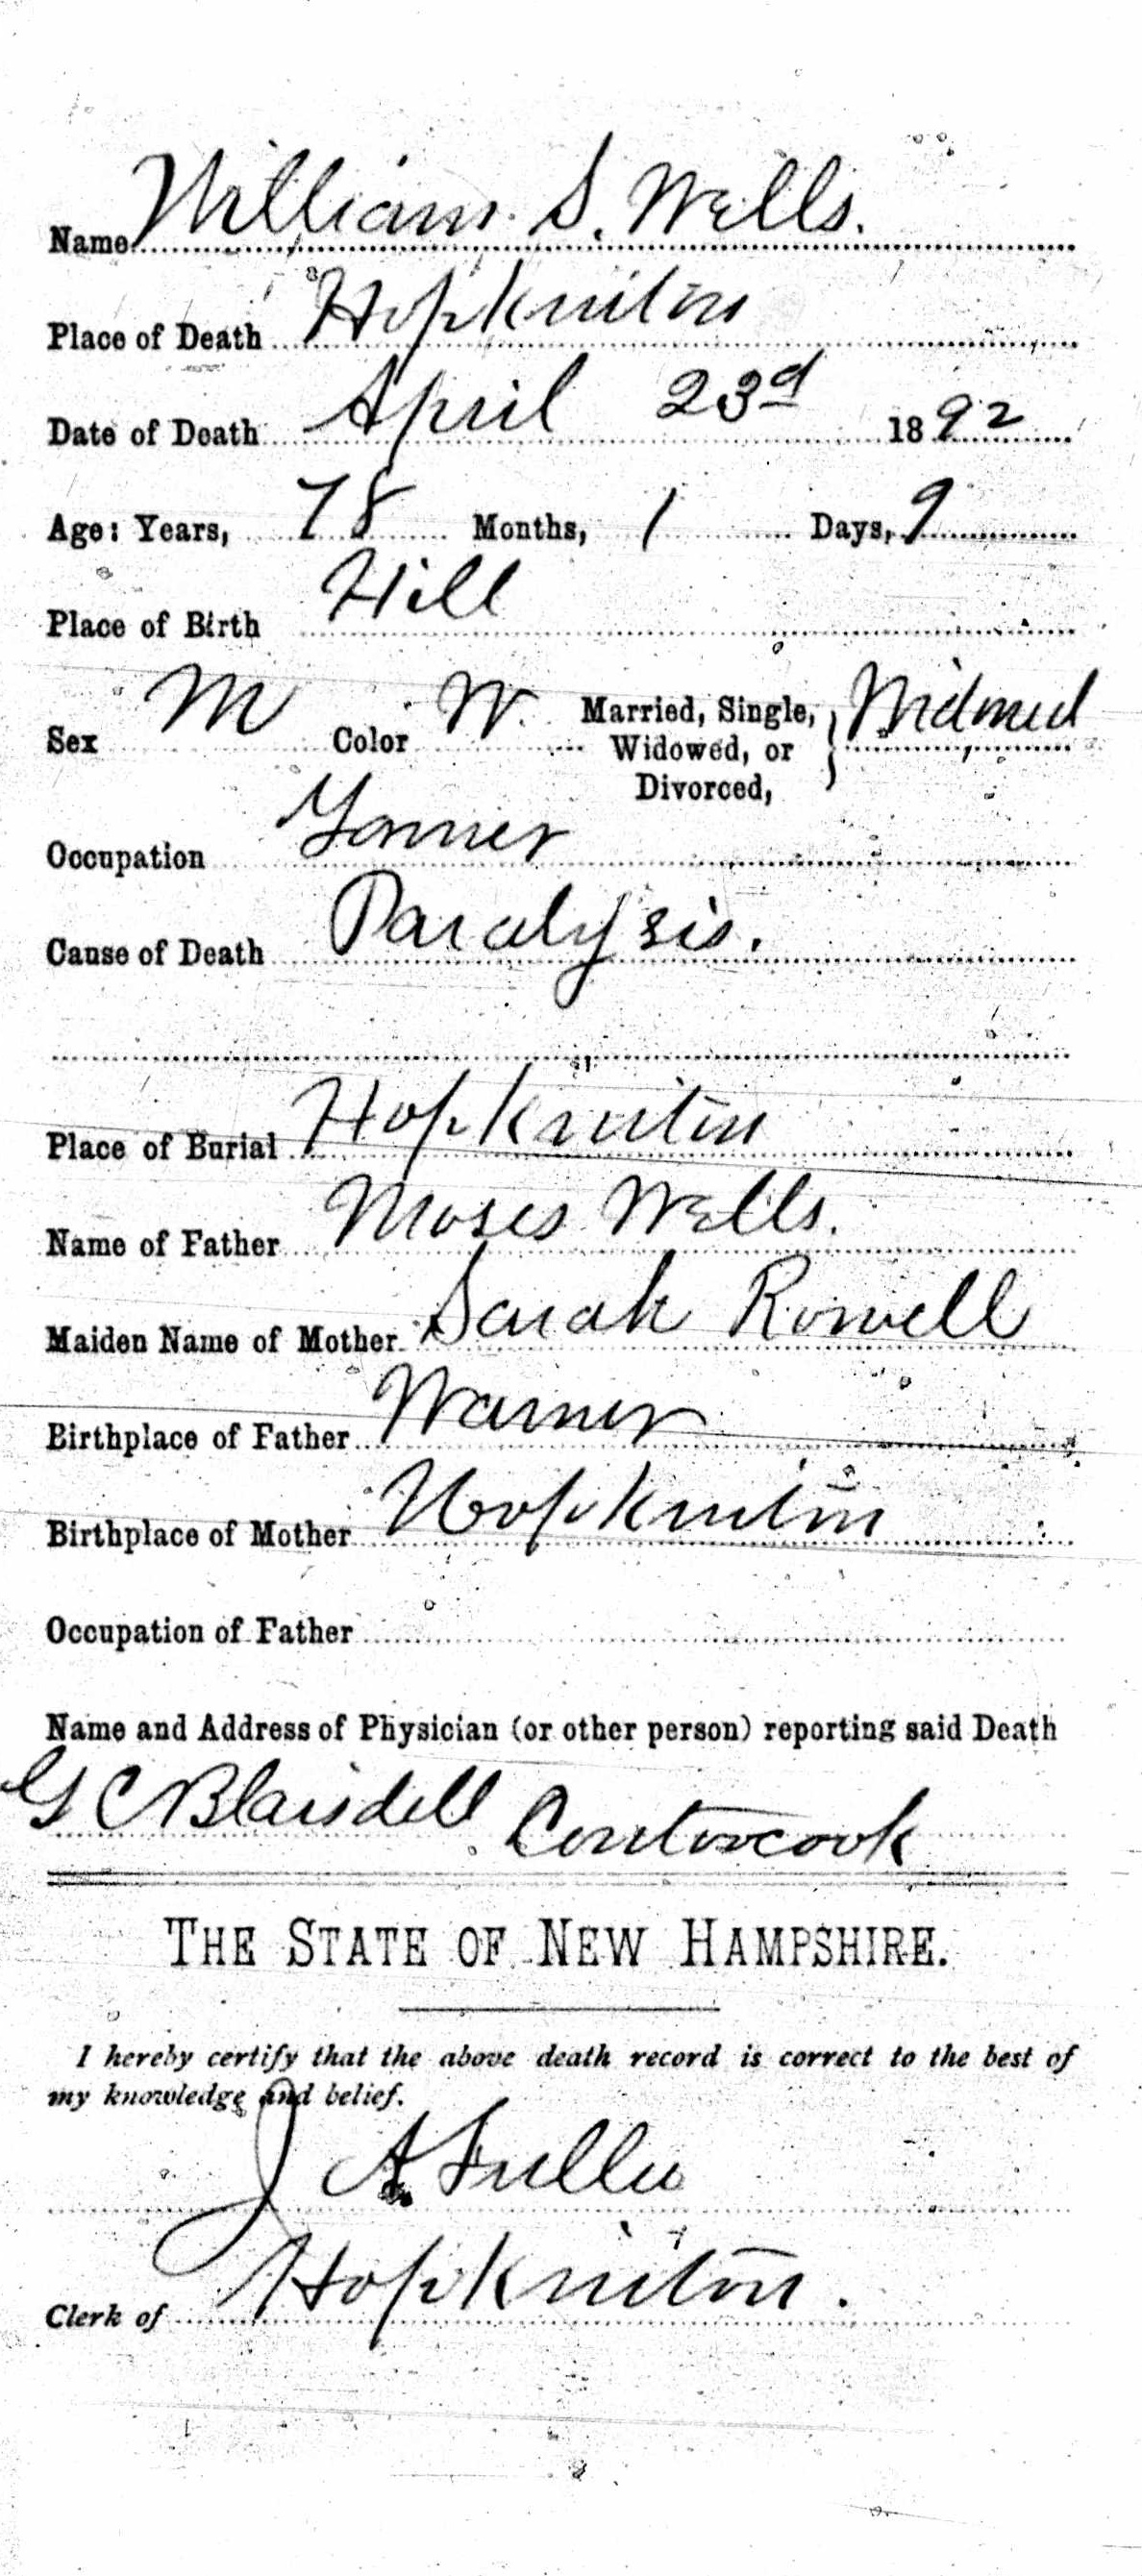 Name William S. Wells.
Place of Death Hopkinton
Date of Death April 23d 1892
Age: Years, 78 Months, 1 Days, 9
Place of Birth Hill
Sex M Color W. Married, Single, Widowed, or Divorced, } Widowed
Occupation Farmer
Cause of Death Paralysis.
Place of Burial Hopkinton
Name of Father Moses Wells.
Maiden Name of Mother Sarah Rowell
Birthplace of Father Warner
Birthplace of Mother Hopkinton
Occupation of Father
Name and Address of Physician (or other person) reporting said Death
G C Blaisdell Contoocook
THE STATE OF NEW HAMPSHIRE.
I hereby certify that the above death record is correct to the best of
my knowledge and belief.
J A Fuller
Clerk of Hopkinton.